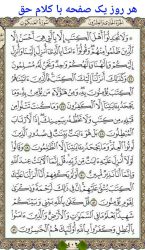 هر روز یک صفحه با کلام حق
وَلَا تُجَٰدِلُوٓا۟ أَهْلَ ٱلْكِتَٰبِ إِلَّا بِٱلَّتِى هِىَ أَحْسَنُ إِلَّا ٱلَّذِينَ
ظَلَمُوا۟ مِنْهُمْ وَقُولُوٓا۟ ءَامَنَّا بِٱلَّذِىٓ أُنزِلَ إِلَيْنَا وَأُنزِلَ
إِلَيْكُمْ وَإِلَٰهُنَا وَإِلَٰهُكُمْ وَٰحِدٌ وَنَحْنُ لَهُۥ مُسْلِمُونَ ٤٦
وَكَذَٰلِكَ أَنزَلْنَآ إِلَيْكَ ٱلْكِتَٰبَ فَٱلَّذِينَ ءَاتَيْنَٰهُمُ ٱلْكِتَٰبَ
يُؤْمِنُونَ بِهِۦ وَمِنْ هَٰٓؤُلَآءِ مَن يُؤْمِنُ بِهِۦ وَمَا يَجْحَدُ بِـَٔايَٰتِنَآ
إِلَّا ٱلْكَٰفِرُونَ ٤٧ وَمَا كُنتَ تَتْلُوا۟ مِن قَبْلِهِۦ مِن كِتَٰبٍ وَلَا
تَخُطُّهُۥ بِيَمِينِكَ إِذًا لَّٱرْتَابَ ٱلْمُبْطِلُونَ ٤٨ بَلْ هُوَ ءَايَٰتٌۢ
بَيِّنَٰتٌ فِى صُدُورِ ٱلَّذِينَ أُوتُوا۟ ٱلْعِلْمَ وَمَا يَجْحَدُ بِـَٔايَٰتِنَآ إِلَّا
ٱلظَّٰلِمُونَ ٤٩ وَقَالُوا۟ لَوْلَآ أُنزِلَ عَلَيْهِ ءَايَٰتٌ مِّن رَّبِّهِۦ قُلْ
إِنَّمَا ٱلْءَايَٰتُ عِندَ ٱللَّهِ وَإِنَّمَآ أَنَا۠ نَذِيرٌ مُّبِينٌ ٥٠ أَوَلَمْ يَكْفِهِمْ
أَنَّآ أَنزَلْنَا عَلَيْكَ ٱلْكِتَٰبَ يُتْلَىٰ عَلَيْهِمْ إِنَّ فِى ذَٰلِكَ
لَرَحْمَةً وَذِكْرَىٰ لِقَوْمٍ يُؤْمِنُونَ ٥١ قُلْ كَفَىٰ بِٱللَّهِ بَيْنِى
وَبَيْنَكُمْ شَهِيدًا يَعْلَمُ مَا فِى ٱلسَّمَٰوَٰتِ وَٱلْأَرْضِ وَٱلَّذِينَ
ءَامَنُوا۟ بِٱلْبَٰطِلِ وَكَفَرُوا۟ بِٱللَّهِ أُو۟لَٰٓئِكَ هُمُ ٱلْخَٰسِرُونَ ٥٢